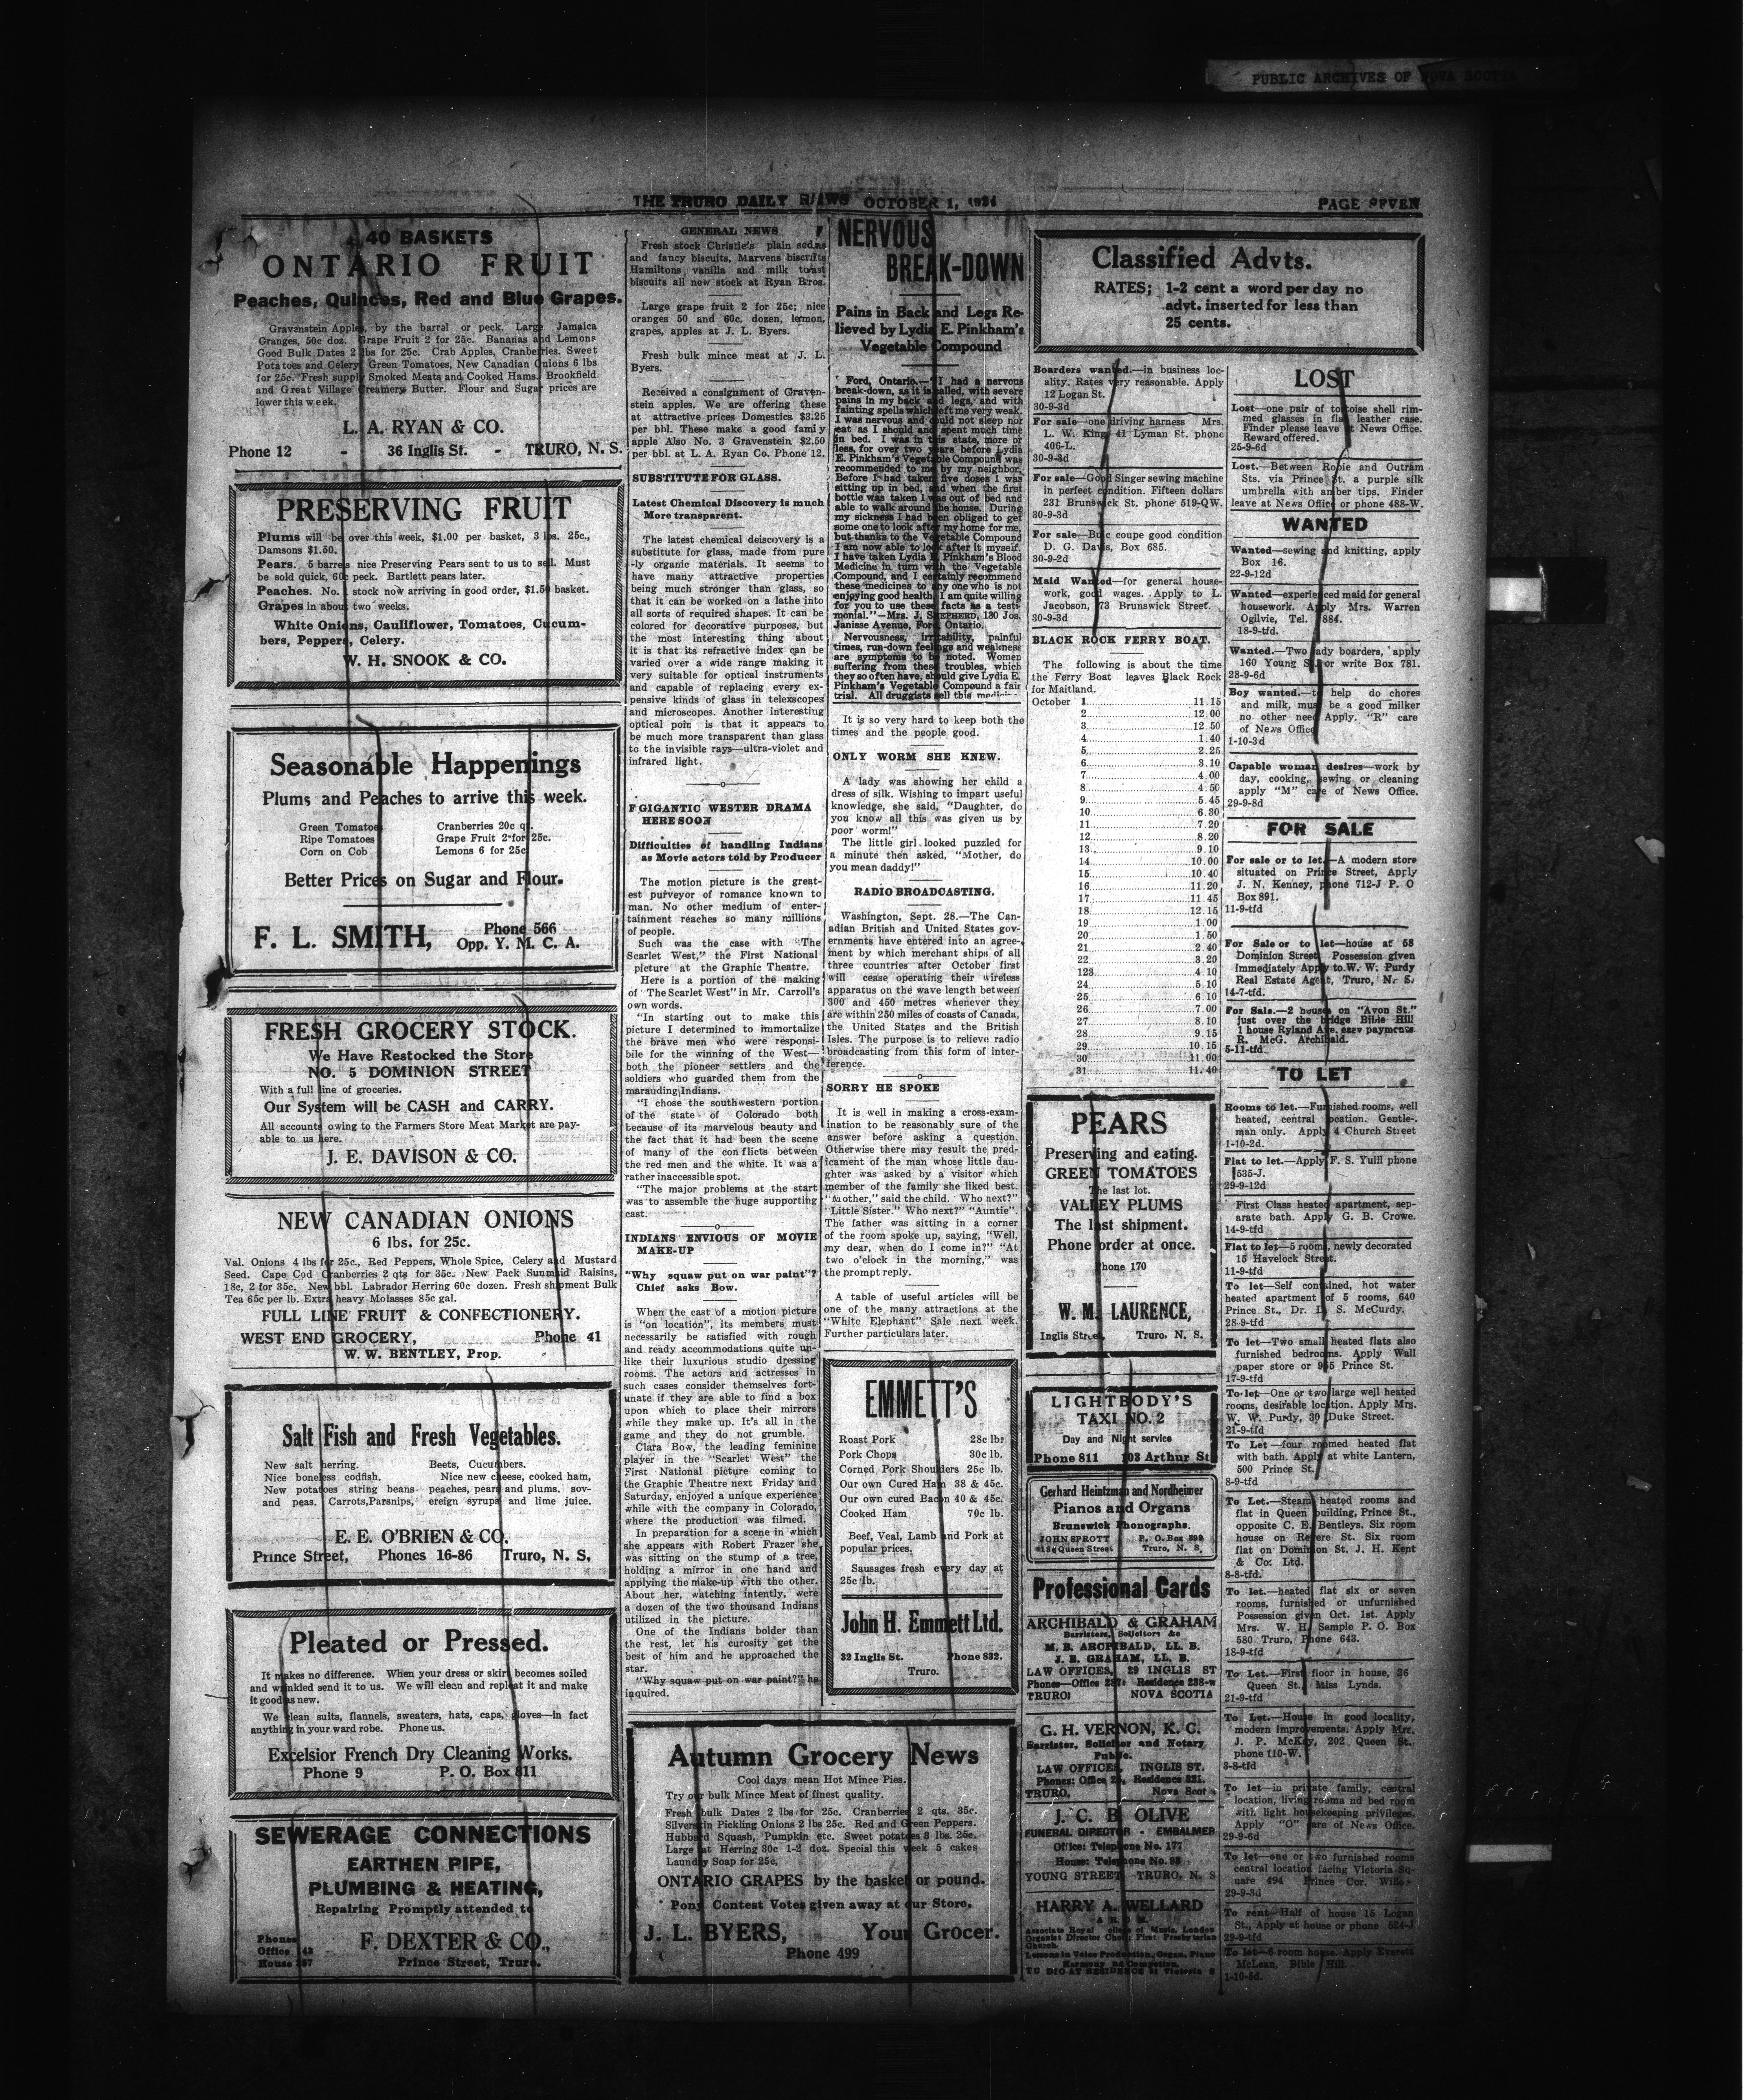 PUBLIC ARCHIVES OF NOVA SCOTIA
THE TRURO DAILY NEWS OCTOBER 1,
PAGE SEVEN
40 BASKETS
ONTARIO FRUIT
Peaches, Quinces, Red and Blue Grapes.
Gravenstein Apples, by the barrel or peck. Large Jamaica
Granges, 50c doz. Grape Fruit 2 for 25c. Bananas and Lemons
Good Bulk Dates 2 lbs for 25c. Crab Apples, Cranberries. Sweet
Potatoes and Celery. Green Tomatoes, New Canadian Onions 6 lbs
for 25c. Fresh supply Smoked Meats and Cooked Hams. Brookfield
and Great Village Creamery Butter. Flour and Sugar prices are
lower this week.
L. A. RYAN & CO.
Phone 12 - 36 Inglis St. - TRURO, N. S.
PRESERVING FRUIT
Plums will be over this week, $1.00 per basket, 3 lbs. 25c.,
Damsons $1.50.
Pears. 5 barrels nice Preserving Pears sent to us to sell. Must
be sold quick, 60c peck. Bartlett pears later.
Peaches. No. 1 stock now arriving in good order, $1.50 basket.
Grapes in about two weeks.
White Onions, Cauliflower, Tomatoes, Cucum-
bers, Peppers, Celery.
W. H. SNOOK & CO.
Seasonable Happenings
Plums and Peaches to arrive this week.
Green Tomatoes Cranberries 20c qt.
Ripe Tomatoes Grape Fruit 2 for 25c.
Corn on Cob Lemons 6 for 25c
Better Prices on Sugar and Flour.
F. L. SMITH, Phone 566
Opp. Y. M. C. A.
FRESH GROCERY STOCK.
We Have Restocked the Store
NO. 5 DOMINION STREET
With a full line of groceries.
Our System will be CASH and CARRY.
All accounts owing to the Farmers Store Meat Market are pay-
able to us here.
J. E. DAVISON & CO.
NEW CANADIAN ONIONS
6 lbs. for 25c.
Val. Onions 4 lbs for 25c., Red Peppers, Whole Spice, Celery and Mustard
Seed. Cape Cod Cranberries 2 qts for 35c. New Pack Sunmaid Raisins,
18c, 2 for 35c. New bbl. Labrador Herring 60c dozen. Fresh shipment Bulk
Tea 65c per lb. Extra heavy Molasses 85c gal.
FULL LINE FRUIT & CONFECTIONERY.
WEST END GROCERY, Phone 41
W. W. BENTLEY, Prop.
Salt Fish and Fresh Vegetables.
New salt herring. Beets, Cucumbers.
Nice boneless codfish. Nice new cheese, cooked ham,
New potatoes string beans peaches, pears and plums. sov-
and peas. Carrots,Parsnips, ereign syrups and lime juice.
E. E. O'BRIEN & CO.
Prince Street, Phones 16-86 Truro, N. S.
Pleated or Pressed.
It makes no difference. When your dress or skirt becomes soiled
and wrinkled send it to us. We will clean and repleat it and make
it good as new.
We clean suits, flannels, sweaters, hats, caps, gloves—in fact
anything in your ward robe. Phone us.
Excelsior French Dry Cleaning Works.
Phone 9 P. O. Box 811
SEWERAGE CONNECTIONS
EARTHEN PIPE,
PLUMBING & HEATING,
Repairing Promptly attended to
Phones
Office 43
House
F. DEXTER & CO.,
Prince Street, Truro.
GENERAL NEWS
Fresh stock Christie's plain sodas
and fancy biscuits, Marvens biscuits
Hamiltons vanilla and milk toast
biscuits all new stock at Ryan Bros.
Large grape fruit 2 for 25c; nice
oranges 50 and 60c. dozen, lemon,
grapes, apples at J. L. Byers.
Fresh bulk mince meat at J. L.
Byers.
Received a consignment of Graven-
stein apples. We are offering these
at attractive prices Domestics $3.25
per bbl. These make a good family
apple Also No. 3 Gravenstein $2.50
per bbl. at L. A. Ryan Co. Phone 12.
SUBSTITUTE FOR GLASS.
Latest Chemical Discovery is much
More transparent.
The latest chemical deiscovery is a
substitute for glass, made from pure
-ly organic materials. It seems to
have many attractive properties
being much stronger than glass, so
that it can be worked on a lathe into
all sorts of required shapes. It can be
colored for decorative purposes, but
the most interesting thing about
it is that its refractive index can be
varied over a wide range making it
very suitable for optical instruments
and capable of replacing every ex-
pensive kinds of glass in telexscopes
and microscopes. Another interesting
optical poin is that it appears to
be much more transparent than glass
to the invisible rays—ultra-violet and
infrared light.
F GIGANTIC WESTER DRAMA
HERE SOON
Difficulties of handling Indians
as Movie actors told by Producer
The motion picture is the great-
est purveyor of romance known to
man. No other medium of enter-
tainment reaches so many millions
of people.
Such was the case with "The
Scarlet West," the First National
picture at the Graphic Theatre.
Here is a portion of the making
of "The Scarlet West" in Mr. Carroll's
own words.
"In starting out to make this
picture I determined to immortalize
the brave men who were responsi-
bile for the winning of the West—
both the pioneer settlers and the
soldiers who guarded them from the
marauding Indians.
"I chose the southwestern portion
of the state of Colorado both
because of its marvelous beauty and
the fact that it had been the scene
of many of the conflicts between
the red men and the white. It was a
rather inaccessible spot.
"The major problems at the start
was to assemble the huge supporting
cast.
INDIANS ENVIOUS OF MOVIE
MAKE-UP
"Why squaw put on war paint"?
Chief asks Bow.
When the cast of a motion picture
is "on location", its members must
necessarily be satisfied with rough
and ready accommodations quite un-
like their luxurious studio dressing
rooms. The actors and actresses in
such cases consider themselves fort-
unate if they are able to find a box
upon which to place their mirrors
while they make up. It's all in the
game and they do not grumble.
Clara Bow, the leading feminine
player in the "Scarlet West" the
First National picture coming to
the Graphic Theatre next Friday and
Saturday, enjoyed a unique experience
while with the company in Colorado,
where the production was filmed.
In preparation for a scene in which
she appears with Robert Frazer she
was sitting on the stump of a tree,
holding a mirror in one hand and
applying the make-up with the other.
About her, watching intently, were
a dozen of the two thousand Indians
utilized in the picture.
One of the Indians bolder than
the rest, let his curosity get the
best of him and he approached the
star.
"Why squaw put on war paint?" he
inquired.
NERVOUS
BREAK-DOWN
Pains in Back and Legs Re-
lieved by Lydia E. Pinkham's
Vegetable Compound
Ford, Ontario.—"I had a nervous
break-down, as it is called, with severe
pains in my back and legs, and with
fainting spells which left me very weak.
I was nervous and could not sleep nor
eat as I should and spent much time
in bed. I was in this state, more or
less, for over two years before Lydia
E. Pinkham's Vegetable Compound was
recommended to me by my neighbor.
Before I had taken five doses I was
sitting up in bed, and when the first
bottle was taken I was out of bed and
able to walk around the house. During
my sickness I had been obliged to get
some one to look after my home for me,
but thanks to the Vegetable Compound
I am now able to look after it myself.
I have taken Lydia E. Pinkham's Blood
Medicine in turn with the Vegetable
Compound, and I certainly recommend
these medicines to any one who is not
enjoying good health. I am quite willing
for you to use these facts as a testi-
monial."—Mrs. J. SHEPHERD, 130 Jos.
Janisse Avenue, Ford, Ontario.
Nervousness, irritability, painful
times, run-down feelings and weakness
are symptoms to be noted. Women
suffering from these troubles, which
they so often have, should give Lydia E.
Pinkham's Vegetable Compound a fair
trial. All druggists sell this medi
It is so very hard to keep both the
times and the people good.
ONLY WORM SHE KNEW.
A lady was showing her child a
dress of silk. Wishing to impart useful
knowledge, she said, "Daughter, do
you know all this was given us by
poor worm!"
The little girl looked puzzled for
a minute then asked, "Mother, do
you mean daddy!"
RADIO BROADCASTING.
Washington, Sept. 28.—The Can-
adian British and United States gov-
ernments have entered into an agree-
ment by which merchant ships of all
three countries after October first
will cease operating their wireless
apparatus on the wave length between
300 and 450 metres whenever they
are within 250 miles of coasts of Canada,
the United States and the British
Isles. The purpose is to relieve radio
broadcasting from this form of inter-
ference.
SORRY HE SPOKE
It is well in making a cross-exam-
ination to be reasonably sure of the
answer before asking a question.
Otherwise there may result the pred-
icament of the man whose little dau-
ghter was asked by a visitor which
member of the family she liked best.
"Mother," said the child. Who next?"
"Little Sister." Who next?" "Auntie".
The father was sitting in a corner
of the room spoke up, saying, "Well,
my dear, when do I come in?" "At
two o'clock in the morning," was
the prompt reply.
A table of useful articles will be
one of the many attractions at the
"White Elephant" Sale next week.
Further particulars later.
EMMETT'S
Roast Pork 28c lb.
Pork Chops 30c lb.
Corned Pork Shoulders 25c lb.
Our own Cured Ham 38 & 45c.
Our own cured Bacon 40 & 45c.
Cooked Ham 70c lb.
Beef, Veal, Lamb and Pork at
popular prices.
Sausages fresh every day at
25c lb.
John H. Emmett Ltd.
32 Inglis St. Phone 832.
Truro.
Autumn Grocery News
Cool days mean Hot Mince Pies.
Try our bulk Mince Meat of finest quality.
Fresh bulk Dates 2 lbs for 25c. Cranberries 2 qts. 35c.
Silverskin Pickling Onions 2 lbs 25c. Red and Green Peppers.
Hubbard Squash, Pumpkin etc. Sweet potatoes 3 lbs. 25c.
Large fat Herring 30c 1-2 doz. Special this week 5 cakes
Laundry Soap for 25c.
ONTARIO GRAPES by the basket or pound.
Pony Contest Votes given away at our Store.
J. L. BYERS, Your Grocer.
Phone 499
Classified Advts.
RATES; 1-2 cent a word per day no
advt. inserted for less than
25 cents.
Boarders wanted.—in business loc-
ality. Rates very reasonable. Apply
12 Logan St.
30-9-3d
For sale—one driving harness Mrs.
L. W. King 41 Lyman St. phone
406-L.
30-9-3d
For sale—Good Singer sewing machine
in perfect condition. Fifteen dollars
231 Brunswick St. phone 519-QW.
30-9-3d
For sale—Buic coupe good condition
D. G. Davis, Box 685.
30-9-2d
Maid Wanted—for general house-
work, good wages. Apply to L.
Jacobson, 73 Brunswick Street.
30-9-3d
BLACK ROCK FERRY BOAT.
The following is about the time
the Ferry Boat leaves Black Rock
for Maitland.
October 1 11.15
2 12.00
3 12.50
4 1.40
5 2.25
6 3.10
7 4.00
8 4.50
9 5.45
10 6.30
11 7.20
12 8.20
13 9.10
14 10.00
15 10.40
16 11.20
17 11.45
18 12.15
19 1.00
20 1.50
21 2.40
22 3.20
123 4.10
24 5.10
25 6.10
26 7.00
27 8.10
28 9.15
29 10.15
30 11.00
31 11.40
PEARS
Preserving and eating.
GREEN TOMATOES
The last lot.
VALLEY PLUMS
The last shipment.
Phone order at once.
Phone 170
W. M. LAURENCE,
Inglis Street, Truro, N. S.
LIGHTBODY'S
TAXI NO. 2
Day and Night service
Phone 811 103 Arthur St
Gerhard Heintzman and Nordheimer
Pianos and Organs
Brunswick Phonographs.
JOHN SPROTT P. O. Box 599
Queen Street Truro, N. S,
Professional Cards
ARCHIBALD & GRAHAM
Barristers, Solicitors &c
M. B. ARCHIBALD, LL. B.
J. E. GRAHAM, LL. B.
LAW OFFICES, 29 INGLIS ST
Phones—Office Residence 238-w
TRURO: NOVA SCOTIA
G. H. VERNON, K. C.
Barrister, Solicitor and Notary
Public.
LAW OFFICES, INGLIS ST.
Phones: Office Residence 831.
TRURO, Nova Scot
J. C. B. OLIVE
FUNERAL DIRECTOR - EMBALMER
Office: Telephone No. 177
House: Telephone No.
YOUNG STREET TRURO, N. S
HARRY A. WELLARD
Associate Royal College of Music, London
Organist Director Choir First Presbyterian
Church.
Lessons in Voice Production, Organ, Piano
Harmony
RESIDENCE Victoria S
LOST
Lost—one pair of tortoise shell rim-
med glasses in flat leather case.
Finder please leave at News Office.
Reward offered.
25-9-6d
Lost.—Between Robie and Outram
Sts. via Prince St. a purple silk
umbrella with amber tips. Finder
leave at News Office or phone 488-W.
WANTED
Wanted—sewing and knitting, apply
Box 16.
22-9-12d
Wanted—experienced maid for general
housework. Apply Mrs. Warren
Ogilvie, Tel. 884.
18-9-tfd.
Wanted.—Two lady boarders, apply
160 Young St or write Box 781.
28-9-6d
Boy wanted.—to help do chores
and milk, must be a good milker
no other need Apply. "R" care
of News Office
1-10-3d
Capable woman desires—work by
day, cooking, sewing or cleaning
apply "M" care of News Office.
29-9-8d
FOR SALE
For sale or to let.—A modern store
situated on Prince Street, Apply
J. N. Kenney, phone 712-J P. O
Box 891.
11-9-tfd
For Sale or to let—house at 58
Dominion Street Possession given
immediately Apply to W. W. Purdy
Real Estate Agent, Truro, N. S.
14-7-tfd.
For Sale.—2 houses on "Avon St."
just over the bridge Bible Hill
1 house Ryland Ave. easy payments
R. McG. Archibald.
5-11-tfd.
TO LET
Rooms to let.—Furnished rooms, well
heated, central location. Gentle-
man only. Apply 4 Church Street
1-10-2d.
Flat to let.—Apply F. S. Yuill phone
535-J.
29-9-12d
First Class heated apartment, sep-
arate bath. Apply G. B. Crowe.
14-9-tfd
Flat to let—5 rooms, newly decorated
15 Havelock Street.
11-9-tfd
To let—Self contained, hot water
heated apartment of 5 rooms, 640
Prince St., Dr. D. S. McCurdy.
28-9-tfd
To let—Two small heated flats also
furnished bedrooms. Apply Wall
paper store or 955 Prince St.
17-9-tfd
To let—One or two large well heated
rooms, desirable location. Apply Mrs.
W. W. Purdy, 30 Duke Street.
21-9-tfd
To Let—four roomed heated flat
with bath. Apply at white Lantern,
500 Prince St.
8-9-tfd
To Let.—Steam heated rooms and
flat in Queen building, Prince St.,
opposite C. E. Bentleys. Six room
house on Revere St. Six room
flat on Dominion St. J. H. Kent
& Co. Ltd.
8-8-tfd.
To let.—heated flat six or seven
rooms, furnished or unfurnished
Possession given Oct. 1st. Apply
Mrs. W. H. Semple P. O. Box
580 Truro, Phone 643.
18-9-tfd
To Let.—First floor in house, 26
Queen St. Miss Lynds.
21-9-tfd
To Let.—House in good locality,
modern improvements. Apply Mrs.
J. P. McKay, 202 Queen St.
phone 110-W.
3-8-tfd
To let—in private family, central
location, living rooms nd bed room
with light housekeeping privileges.
Apply "O" care of News Office.
29-9-6d
To let—one or two furnished rooms
central location facing Victoria Sq-
uare 494 Prince Cor.
29-9-3d
To rent—Half of house 15 Logan
St., Apply at house or phone 524-J
29-9-tfd
To let—6 room house. Apply Everett
McLean, Bible Hill.
1-10-5d.